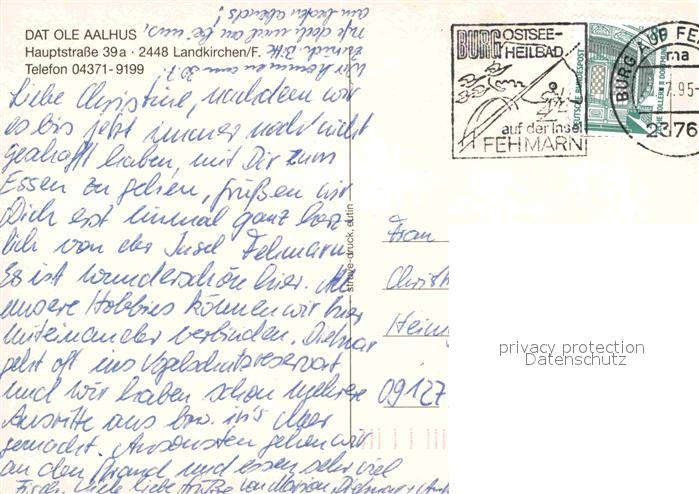 DAT OLE AALHUS
Hauptstraße 39a · 2448 Landkirchen/F.
Telefon 04371-9199
Liebe Christine, nachdem wir
es bis jetzt immer noch nicht
geschafft haben, mit Dir zum
Essen zu gehen, grüßen wir
Dich erst einmal ganz herz
lich von der Insel Fehmarn.
Es ist wunderschön hier. All
unsere Hobbies können wir hier
miteinander verbinden. Dietmar
geht oft ins Vogelschutzreservat
und wir haben schon mehrere
Ausritte aus bzw. in's Meer
gemacht. Ansonsten gehen wir
an den Strand und essen sehr viel
Fisch. Viele liebe Grüße von Marion, Dietmar +
Wir kommen am 30.7.
zurück. Bitte
ruf doch mal an bei uns,
am besten abends!
strowe-druck, eutin
BURG OSTSEE-
HEILBAD
auf der Insel
FEHMARN
DEUTSCHE BUNDESPOST
BURG AUF FE
ma
7.95-
2376
Frau
Christ
Hein
09127
privacy protection
Datenschutz